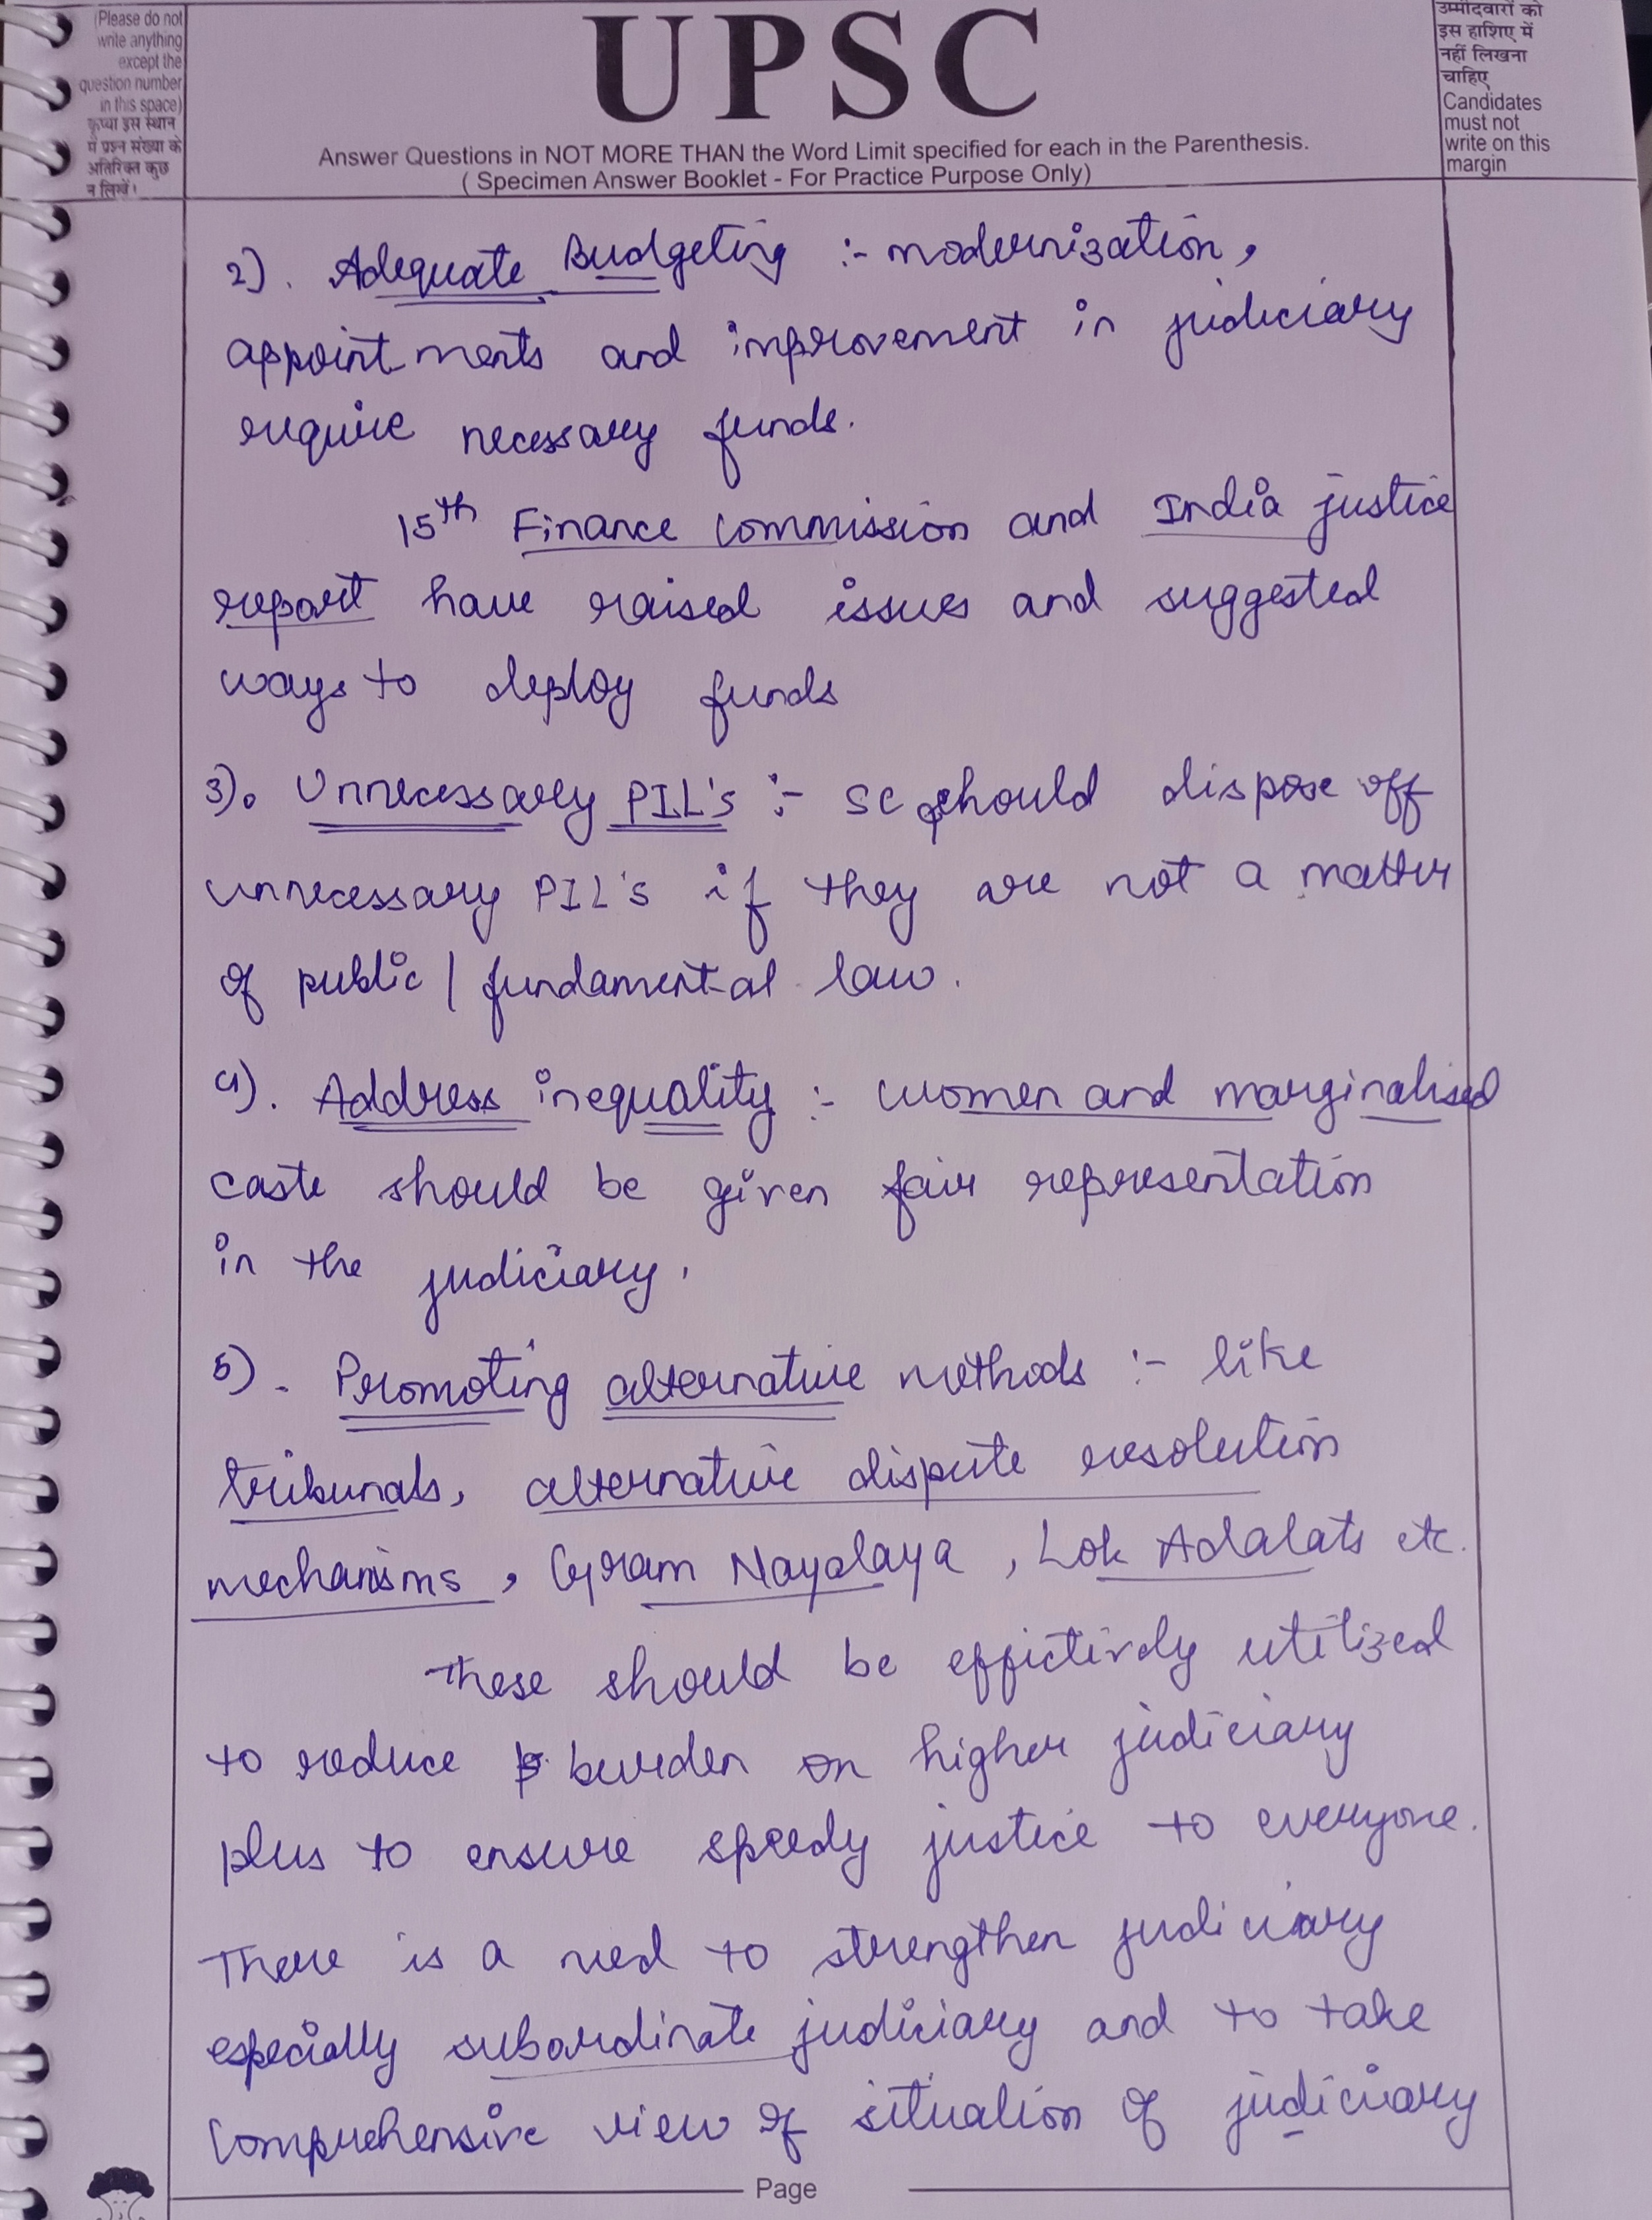 (Please do not
write anything
except the
question number
in this space)
कृप्या इस स्थान
में प्रश्न संख्या के
अतिरिक्त कुछ
न लिखें।
UPSC
Answer Questions in NOT MORE THAN the Word Limit specified for each in the Parenthesis.
( Specimen Answer Booklet - For Practice Purpose Only)
उम्मीदवारों को
इस हाशिए में
नहीं लिखना
चाहिए
Candidates
must not
write on this
margin
2). Adequate Budgeting :- modernization,
appointments and improvement in judiciary
require necessary funds.
15th Finance Commission and India justice
report have raised issues and suggested
ways to deploy funds
3). Unnecessary PIL's :- SC should dispose off
unnecessary PIL's if they are not a matter
of public / fundamental law.
4). Address inequality :- women and marginalised
caste should be given fair representation
in the judiciary.
5). Promoting alternative methods :- like
tribunals, alternative dispute resolution
mechanisms, Gram Nayalaya, Lok Adalats etc.
These should be effictively utilized
to reduce burden on higher judiciary
plus to ensure speedy justice to everyone.
There is a need to strengthen judiciary
especially subordinate judiciary and to take
comprehensive view of situation of judiciary
Page